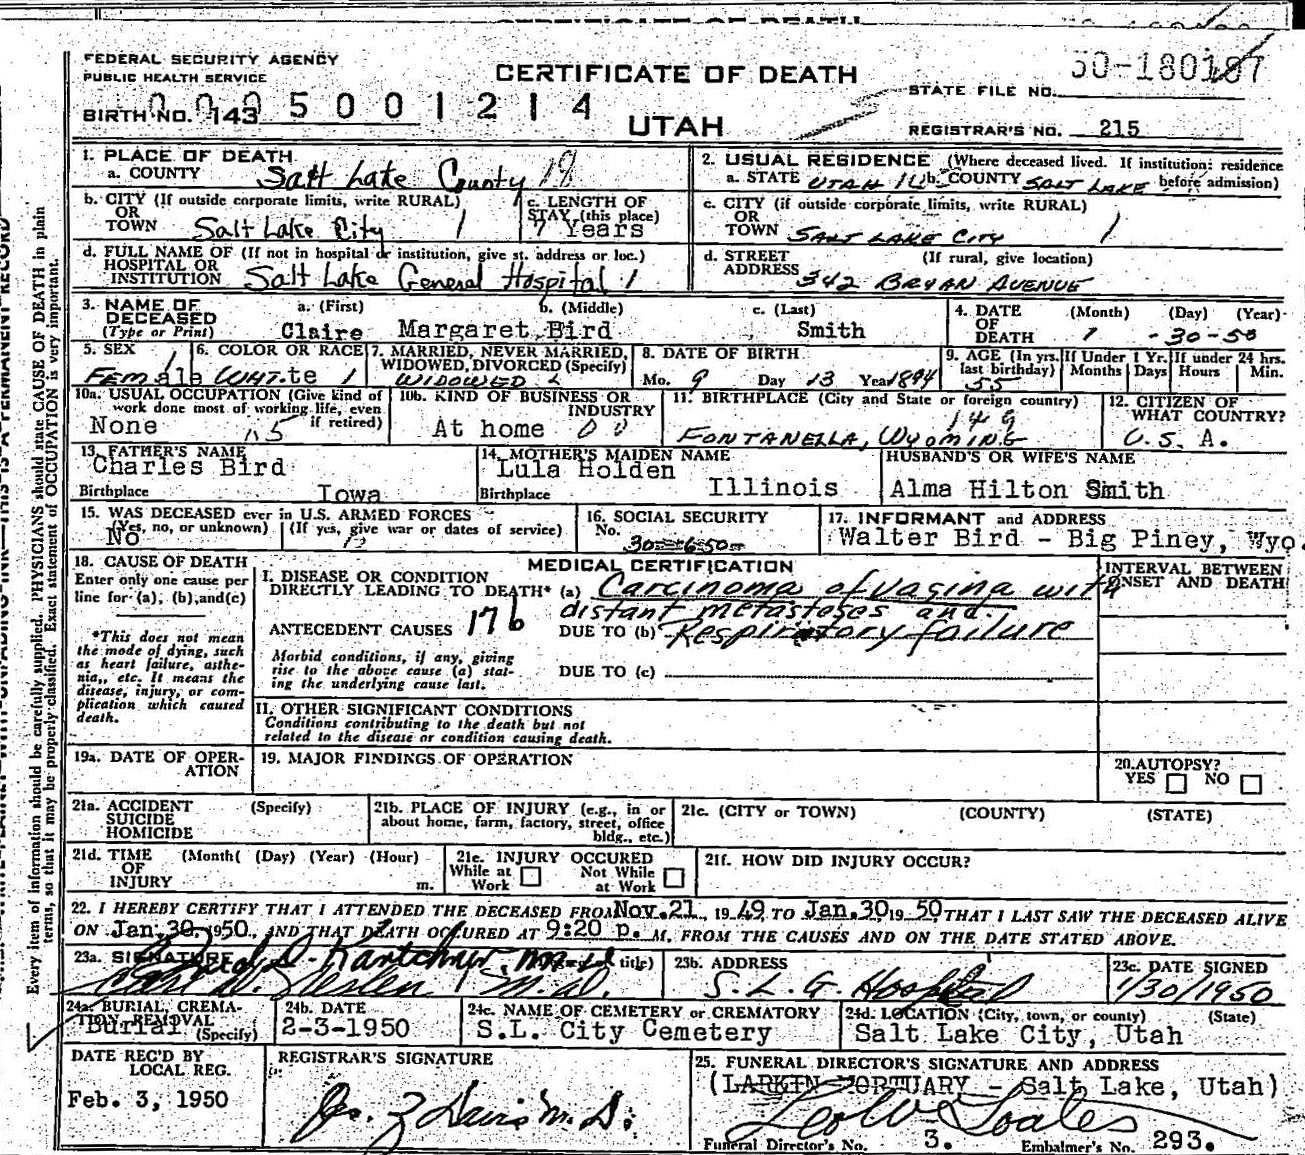 CERTIFICATE OF DEATH
FEDERAL SECURITY AGENCY
PUBLIC HEALTH SERVICE
BIRTH NO. 143 0005001214
CERTIFICATE OF DEATH
UTAH
STATE FILE NO. 50-180187
REGISTRAR'S NO. 215
1. PLACE OF DEATH
a. COUNTY Salt Lake County 18
2. USUAL RESIDENCE (Where deceased lived. If institution: residence before admission)
a. STATE UTAH b. COUNTY SALT LAKE
b. CITY (If outside corporate limits, write RURAL) OR TOWN Salt Lake City 1
c. LENGTH OF STAY (this place) 7 Years
c. CITY (if outside corporate limits, write RURAL) OR TOWN SALT LAKE CITY 1
d. FULL NAME OF (If not in hospital or institution, give st. address or loc.) HOSPITAL OR INSTITUTION Salt Lake General Hospital 1
d. STREET ADDRESS (If rural, give location) 342 BRYAN AVENUE
3. NAME OF DECEASED (Type or Print) a. (First) b. (Middle) c. (Last)
Claire Margaret Bird Smith
4. DATE OF DEATH (Month) (Day) (Year) 1 -30-50
5. SEX Female 1
6. COLOR OR RACE White 1
7. MARRIED, NEVER MARRIED, WIDOWED, DIVORCED (Specify) WIDOWED 2
8. DATE OF BIRTH Mo. 9 Day 13 Year 1894
9. AGE (In yrs. last birthday) 55 If Under 1 Yr. Months Days If under 24 hrs. Hours Min.
10a. USUAL OCCUPATION (Give kind of work done most of working life, even if retired) None
10b. KIND OF BUSINESS OR INDUSTRY At home
11. BIRTHPLACE (City and State or foreign country) 149
FONTANELLA, WYOMING
12. CITIZEN OF WHAT COUNTRY? U.S.A.
13. FATHER'S NAME Charles Bird
Birthplace Iowa
14. MOTHER'S MAIDEN NAME Lula Holden
Birthplace Illinois
HUSBAND'S OR WIFE'S NAME
Alma Hilton Smith
15. WAS DECEASED ever in U.S. ARMED FORCES
(Yes, no, or unknown) (If yes, give war or dates of service)
No
16. SOCIAL SECURITY No.
17. INFORMANT and ADDRESS
Walter Bird - Big Piney, Wyo.
18. CAUSE OF DEATH
Enter only one cause per line for (a), (b), and (c)
*This does not mean the mode of dying, such as heart failure, asthenia,, etc. It means the disease, injury, or complication which caused death.
MEDICAL CERTIFICATION
INTERVAL BETWEEN ONSET AND DEATH
I. DISEASE OR CONDITION DIRECTLY LEADING TO DEATH* (a) Carcinoma of vagina with
distant metastoses and
ANTECEDENT CAUSES 176 DUE TO (b) Respiratory failure
Morbid conditions, if any, giving rise to the above cause (a) stating the underlying cause last.
DUE TO (c)
II. OTHER SIGNIFICANT CONDITIONS
Conditions contributing to the death but not related to the disease or condition causing death.
19a. DATE OF OPERATION
19. MAJOR FINDINGS OF OPERATION
20. AUTOPSY? YES NO
21a. ACCIDENT SUICIDE HOMICIDE (Specify)
21b. PLACE OF INJURY (e.g., in or about home, farm, factory, street, office bldg., etc.)
21c. (CITY OR TOWN) (COUNTY) (STATE)
21d. TIME OF INJURY (Month( (Day) (Year) (Hour) m.
21e. INJURY OCCURED While at Work Not While at Work
21f. HOW DID INJURY OCCUR?
22. I HEREBY CERTIFY THAT I ATTENDED THE DECEASED FROM Nov. 21, 1949 TO Jan. 30, 1950, THAT I LAST SAW THE DECEASED ALIVE
ON Jan. 30, 1950, AND THAT DEATH OCCURED AT 9:20 p. M. FROM THE CAUSES AND ON THE DATE STATED ABOVE.
23a. SIGNATURE title)
M.D.
23b. ADDRESS S.L.G Hospital
23c. DATE SIGNED 1/30/1950
24a. BURIAL, CREMATION, REMOVAL (Specify) Burial
24b. DATE 2-3-1950
24c. NAME OF CEMETERY or CREMATORY S.L. City Cemetery
24d. LOCATION (City, town, or county) (State) Salt Lake City, Utah
DATE REC'D BY LOCAL REG.
Feb. 3, 1950
REGISTRAR'S SIGNATURE
M.D.
25. FUNERAL DIRECTOR'S SIGNATURE AND ADDRESS
(LARKIN MORTUARY - Salt Lake, Utah)
Funeral Director's No. 3. Embalmer's No. 293.
Every item of information should be carefully supplied. PHYSICIANS should state CAUSE OF DEATH in plain
terms, so that it may be properly classified. Exact statement of OCCUPATION is very important.